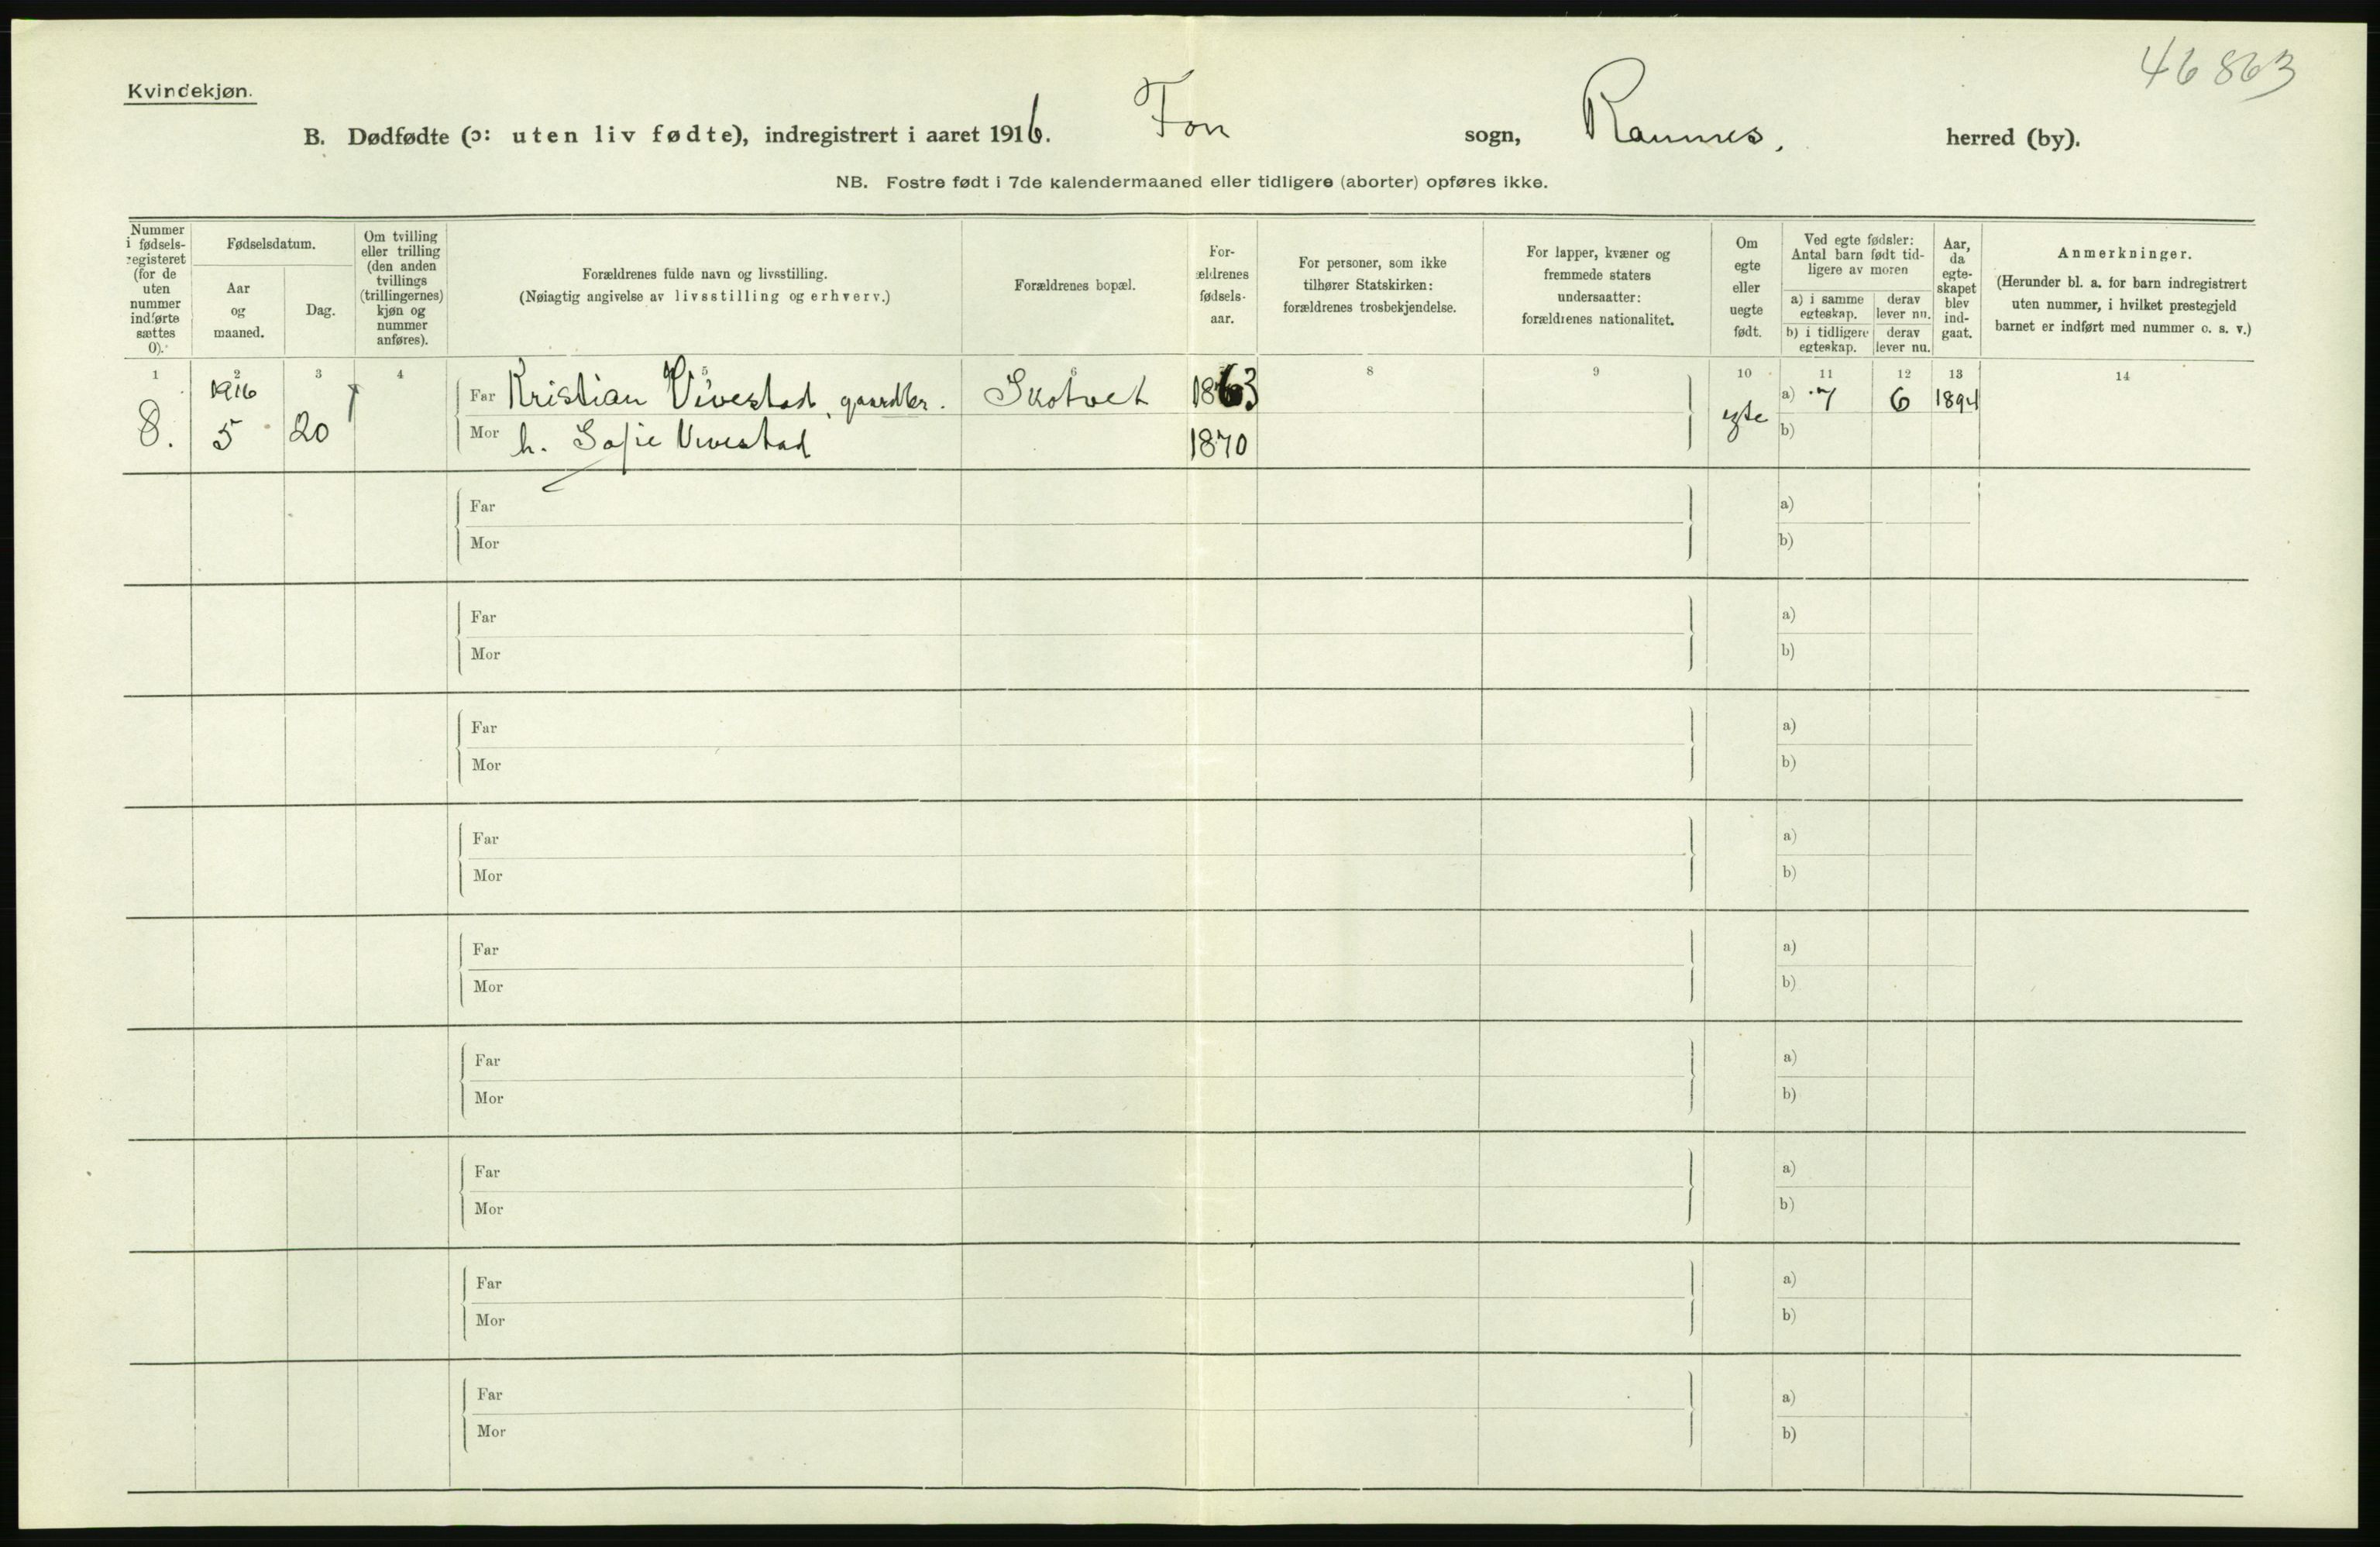 46 863
Kvindekjøn.
B. Dødfødte (ɔ: uten liv fødte), indregistrert i aaret 1916. Fon sogn, Ramnes. herred (by).
NB. Fostre født i 7de kalendermaaned eller tidligere (aborter) opføres ikke.
Nummer i fødsels-registeret (for de uten nummer indførte sættes 0).
Fødselsdatum.
Aar og maaned.
Dag.
Om tvilling eller trilling (den anden tvillings (trillingernes) kjøn og nummer anføres).
Forældrenes fulde navn og livsstilling.
(Nøiagtig angivelse av livsstilling og erhverv.)
Forældrenes bopæl.
For-ældrenes fødsels-aar.
For personer, som ikke tilhører Statskirken: forældrenes trosbekjendelse.
For lapper, kvæner og fremmede staters undersaatter: forældrenes nationalitet.
Om egte eller uegte født.
Ved egte fødsler: Antal barn født tid-ligere av moren
a) i samme egteskap.
derav lever nu.
b) i tidligere egteskap.
derav lever nu.
Aar, da egte-skapet blev ind-gaat.
Anmerkninger.
(Herunder bl. a. for barn indregistrert uten nummer, i hvilket prestegjeld barnet er indført med nummer o. s. v.)
1 2 3 4 5 6 8 9 10 11 12 13 14
1916
8. 5 20 Far Kristian Vivestad, gaardbr. Skotvet 1863 egte a) 7 6 1894
Mor h. Sofie Vivestad 1870 b)
Far a)
Mor b)
Far a)
Mor b)
Far a)
Mor b)
Far a)
Mor b)
Far a)
Mor b)
Far a)
Mor b)
Far a)
Mor b)
Far a)
Mor b)
Far a)
Mor b)